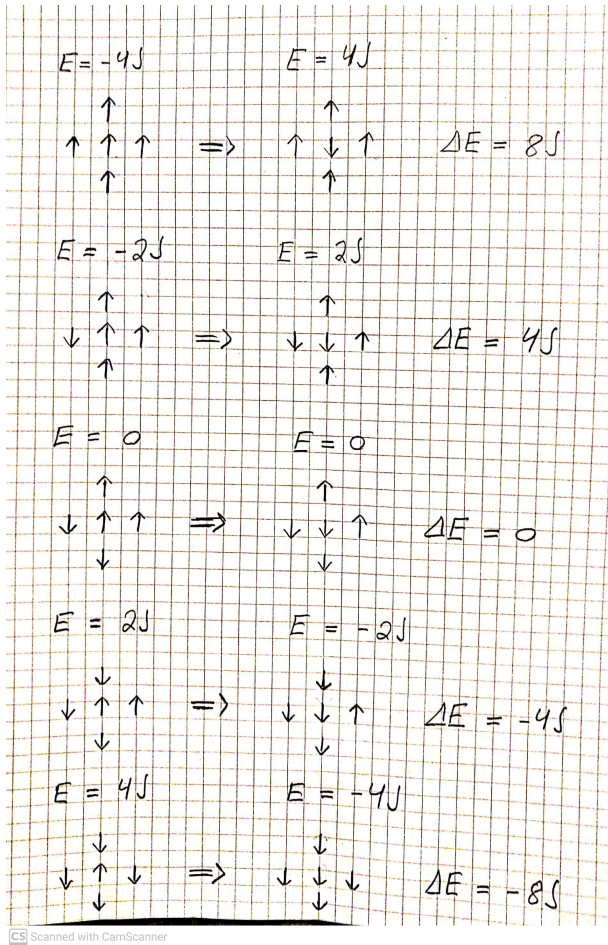 E = -4J E = 4J
↑ ↑
↑ ↑ ↑ => ↑ ↓ ↑ ΔE = 8J
↑ ↑
E = -2J E = 2J
↑ ↑
↓ ↑ ↑ => ↓ ↓ ↑ ΔE = 4J
↑ ↑
E = 0 E = 0
↑ ↑
↓ ↑ ↑ => ↓ ↓ ↑ ΔE = 0
↓ ↓
E = 2J E = -2J
↓ ↓
↓ ↑ ↑ => ↓ ↓ ↑ ΔE = -4J
↓ ↓
E = 4J E = -4J
↓ ↓
↓ ↑ ↓ => ↓ ↓ ↓ ΔE = -8J
↓ ↓
CS Scanned with CamScanner